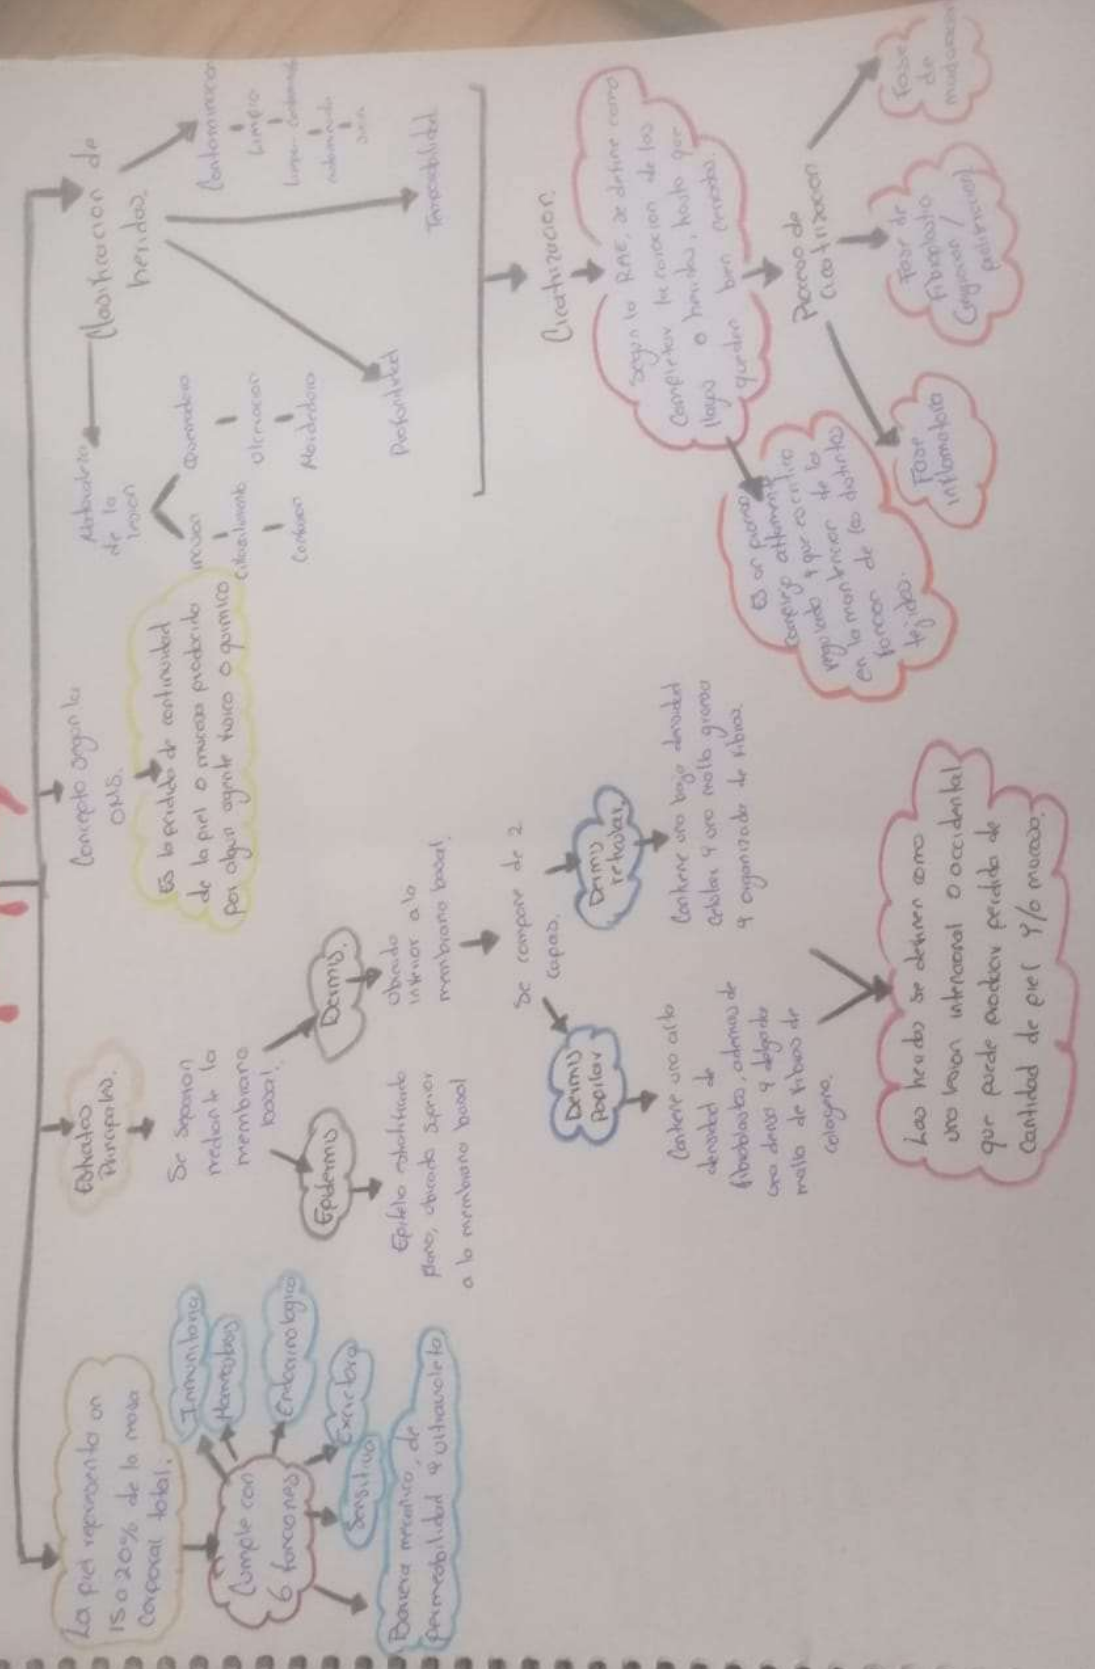 La piel representa un
15 a 20% de la masa
corporal total.
Cumple con
6 funciones
Inmunitaria
Homeostasis
Endocrinologica
Excretora
Sensitiva
Barrera mecanica, de
permeabilidad y ultravioleta
Estratos
Principales.
Se separan
mediante la
membrana
basal.
Epidermis
Epitelio estratificado
plano, ubicado superior
a la membrana basal
Dermis.
Ubicado
inferior a la
membrana basal.
Se compone de 2
capas.
Dermis
Papilar
Contiene una alta
densidad de
fibroblastos, ademas de
una densa y delgada
malla de fibras de
colageno.
Dermis
reticular.
Contiene una baja densidad
celular y una malla gruesa
y organizada de fibras.
Las heridas se definen como
una lesion intencional o accidental
que puede producir perdida de
cantidad de piel y/o mucosa.
Concepto segun la
OMS.
Es la perdida de continuidad
de la piel o mucosa producida
por algun agente fisico o quimico
Clasificacion de
heridas.
de la
lesion
incision
Contusion
Quemadura
Ulceracion
Mordedura
Profundidad
Temporalidad
Contaminacion
Limpia
Limpia-contaminada
contaminada
sucia
Cicatrizacion.
Segun la RAE, se define como
Completar la curacion de las
llagas o heridas, hasta que
queden bien cerradas.
Es un proceso
complejo altamente
regulado y que es critico
en la mantencion de la
funcion de los distintos
tejidos.
Proceso de
Cicatrizacion
Fase
inflamatoria
Fase de
Fibroplastia
/
proliferacion
Fase
de
maduracion